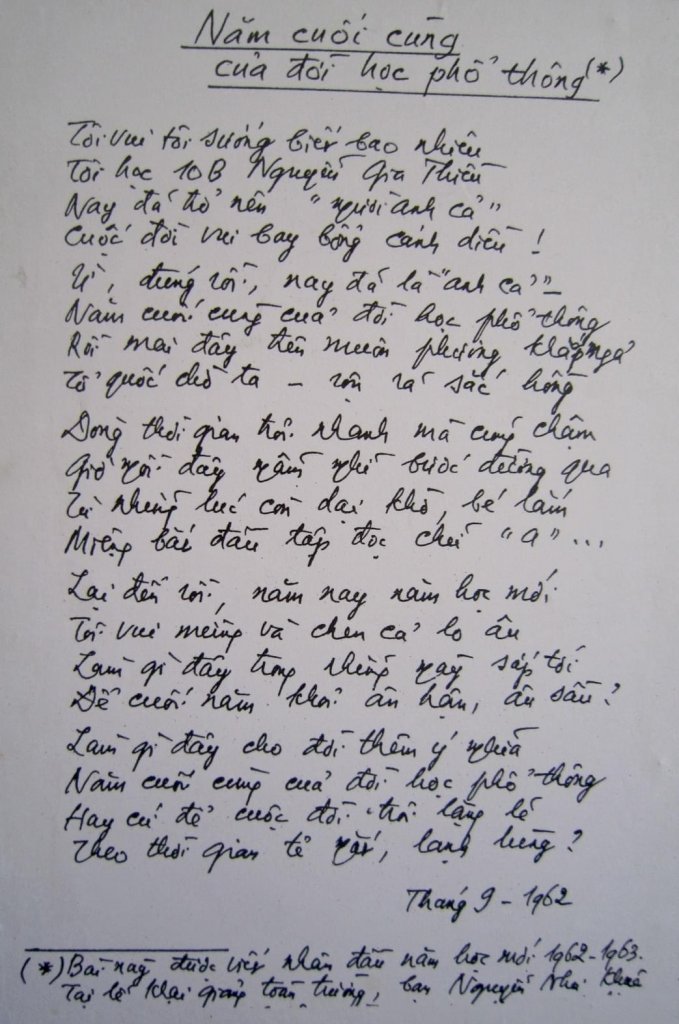 Năm cuối cùng
của đời học phổ thông (*)
Tôi vui tôi sướng biết bao nhiêu
Tôi học 10B Nguyễn Gia Thiều
Nay đã trở nên "người anh cả"
Cuộc đời vui bay bổng cánh diều !
Ừ, đúng rồi, nay đã là "anh cả" –
Năm cuối cùng của đời học phổ thông
Rồi mai đây trên muôn phương khắp ngả
Tổ quốc chờ ta – rộn rã sắc hồng
Dòng thời gian trôi nhanh mà cũng chậm
Giờ ngồi đây ngẫm nghĩ bước đường qua
Từ những lúc còn dại khờ, bé lắm
Miệng bắt đầu tập đọc chữ "a" ...
Lại đến rồi, năm nay năm học mới
Tôi vui mừng và chen cả lo âu
Làm gì đây trong những ngày sắp tới
Để cuối năm khỏi ân hận, âu sầu ?
Làm gì đây cho đời thêm ý nghĩa
Năm cuối cùng của đời học phổ thông
Hay cứ để cuộc đời trôi lặng lẽ
Theo thời gian tẻ ngắt, lạnh lùng ?
Tháng 9 - 1962
(*) Bài này được viết nhân đầu năm học mới 1962-1963.
Tại lễ khai giảng toàn trường, bạn Nguyễn Như